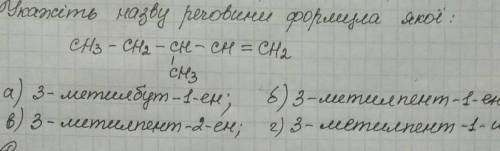 Укажіть назву речовини формула якої:
CH3 - CH2 - CH - CH = CH2
CH3
а) 3-метилбут-1-ен; б) 3-метилпент-1-ен
в) 3-метилпент-2-ен; г) 3-метилпент-1-и